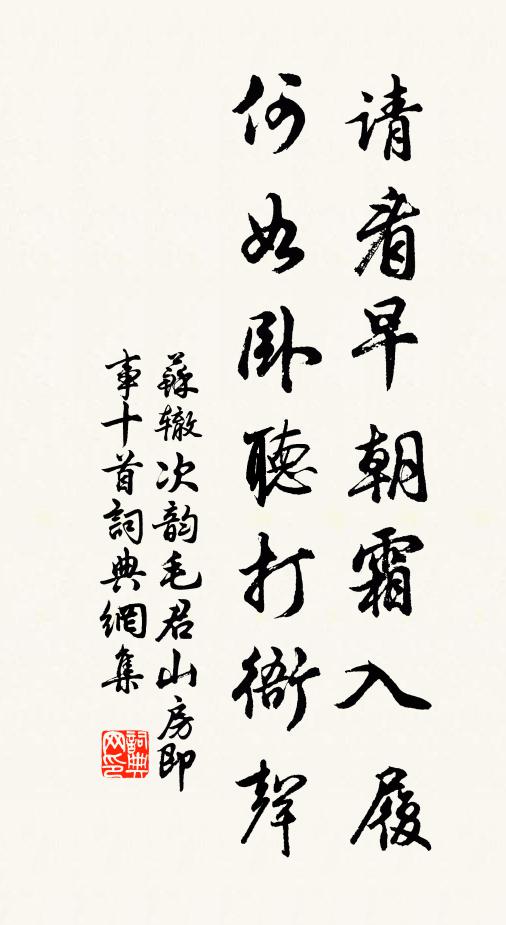 请看早朝霜入履
何如卧聽打衙聲
蘇辙次韵毛君山房即
事十首詞典網集
詞典
网印